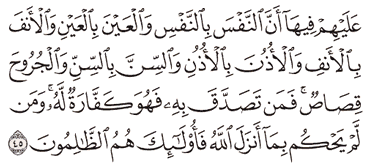 عَلَيْهِمْ فِيهَآ أَنَّ ٱلنَّفْسَ بِٱلنَّفْسِ وَٱلْعَيْنَ بِٱلْعَيْنِ وَٱلْأَنفَ
بِٱلْأَنفِ وَٱلْأُذُنَ بِٱلْأُذُنِ وَٱلسِّنَّ بِٱلسِّنِّ وَٱلْجُرُوحَ
قِصَاصٌ ۚ فَمَن تَصَدَّقَ بِهِۦ فَهُوَ كَفَّارَةٌ لَّهُۥ ۚ وَمَن
لَّمْ يَحْكُم بِمَآ أَنزَلَ ٱللَّهُ فَأُو۟لَـٰٓئِكَ هُمُ ٱلظَّـٰلِمُونَ ٤٥